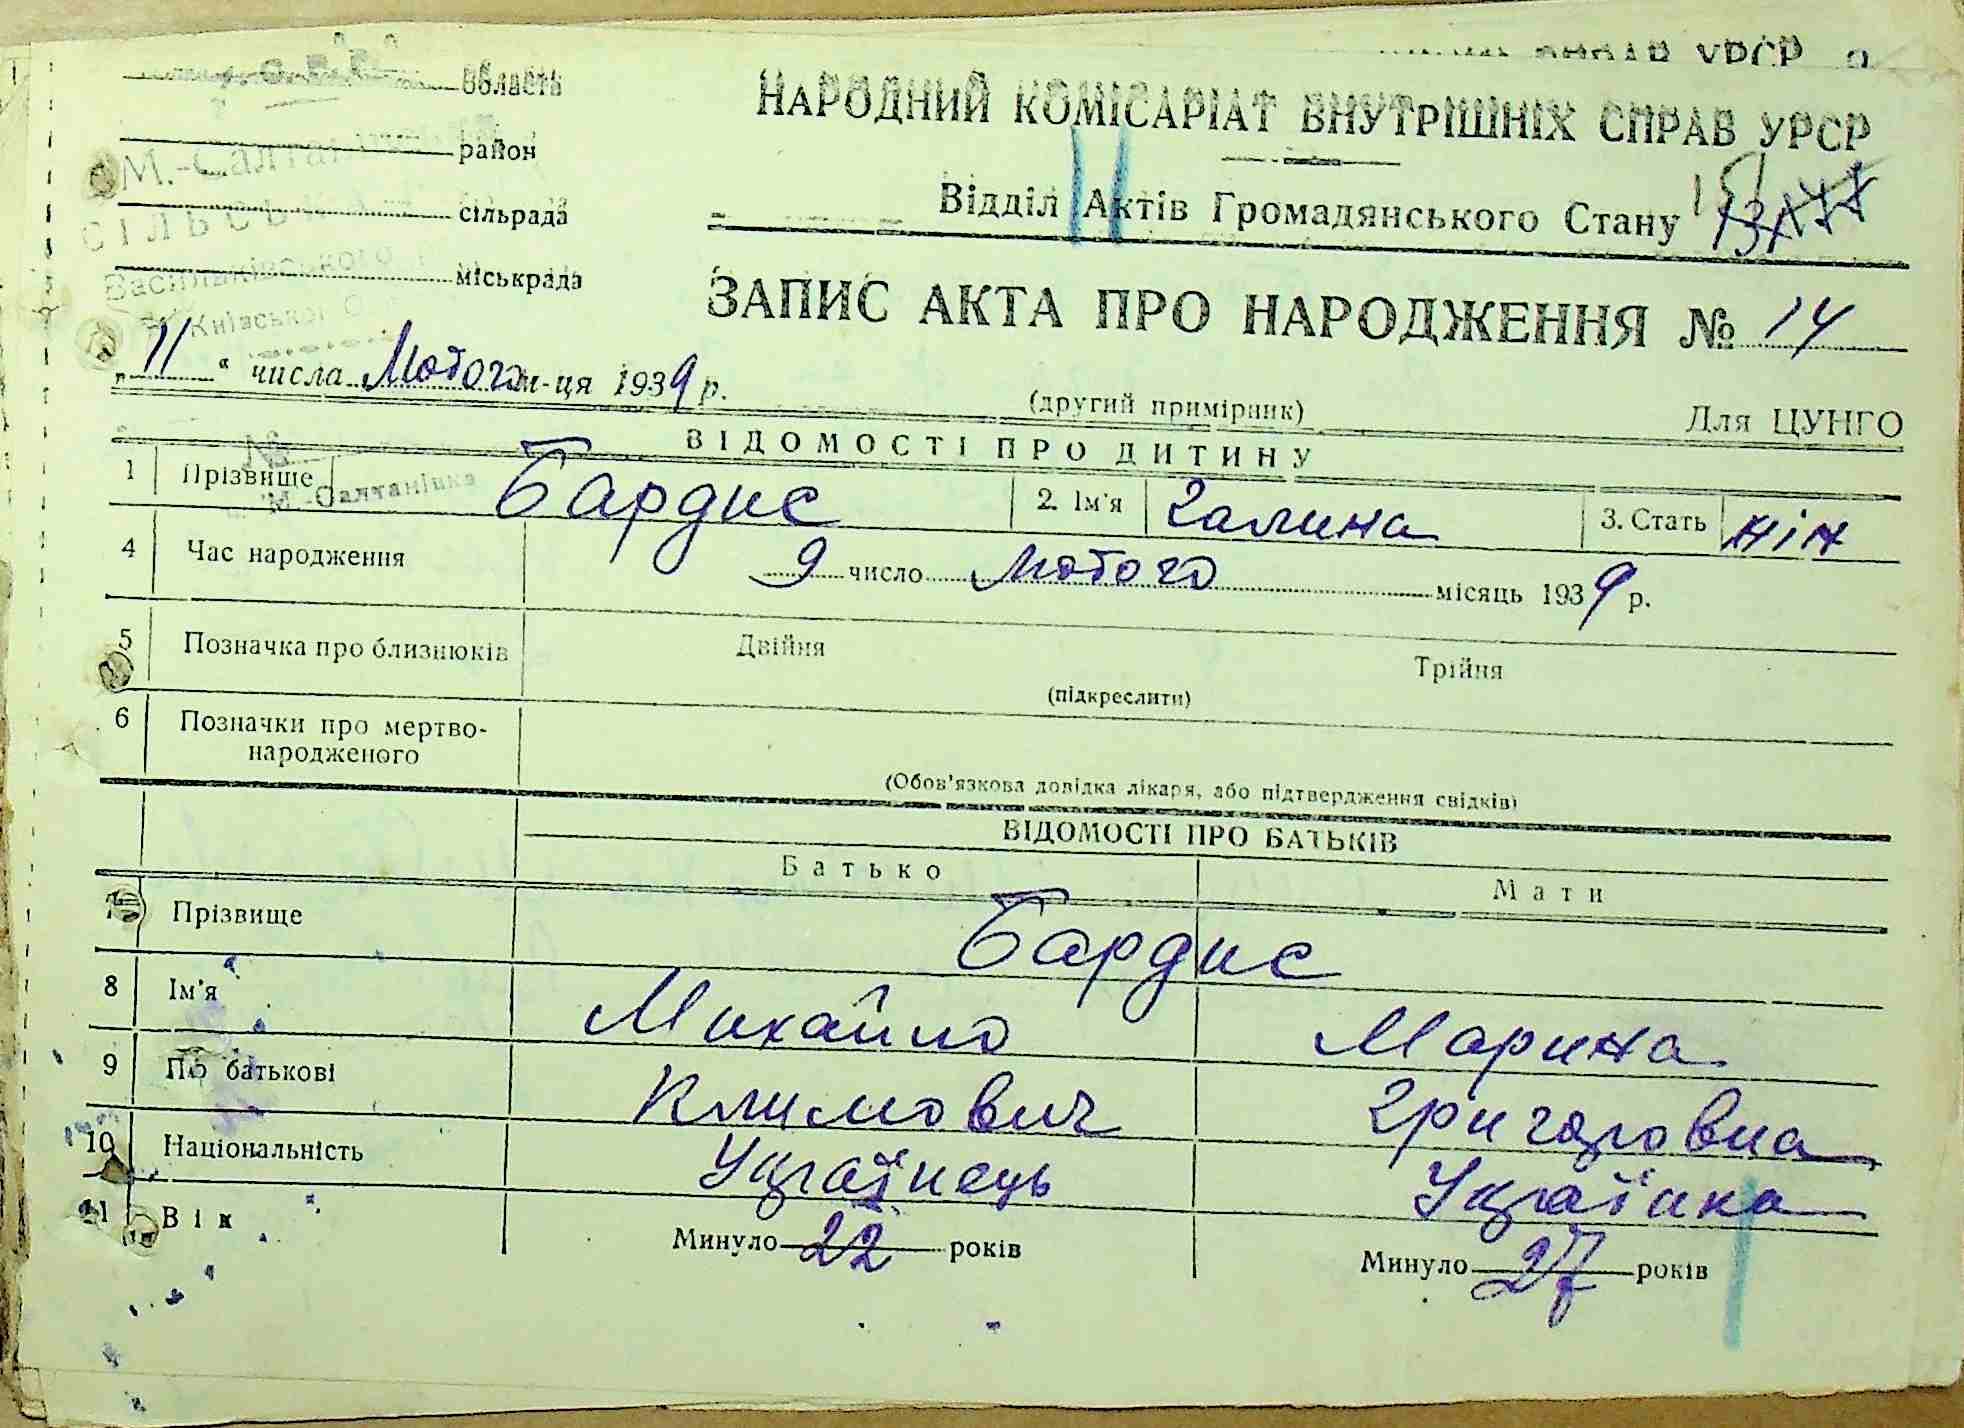 область
район
сільрада
міськрада
М.-Салтанівська
СІЛЬСЬКА
Васильківського
Київської
УРСР
НАРОДНИЙ КОМІСАРІАТ ВНУТРІШНІХ СПРАВ УРСР
Відділ Актів Громадянського Стану
ЗАПИС АКТА ПРО НАРОДЖЕННЯ № 14
„11“ числа Лютого м-ця 1939 р.
(другий примірник)
Для ЦУНГО
ВІДОМОСТІ ПРО ДИТИНУ
№
М.-Салтанівка
1 Прізвище Бардис 2. Ім'я Галина 3. Стать жін
4 Час народження 9 число лютого місяць 1939 р.
5 Позначка про близнюків Двійня Трійня
(підкреслити)
6 Позначки про мертво-
народженого
(Обов'язкова довідка лікаря, або підтвердження свідків)
ВІДОМОСТІ ПРО БАТЬКІВ
Батько Мати
7 Прізвище Бардис
8 Ім'я Михайло Марина
9 По батькові Климович Григоровна
10 Національність Українець Українка
11 Вік Минуло 22 років Минуло 27 років